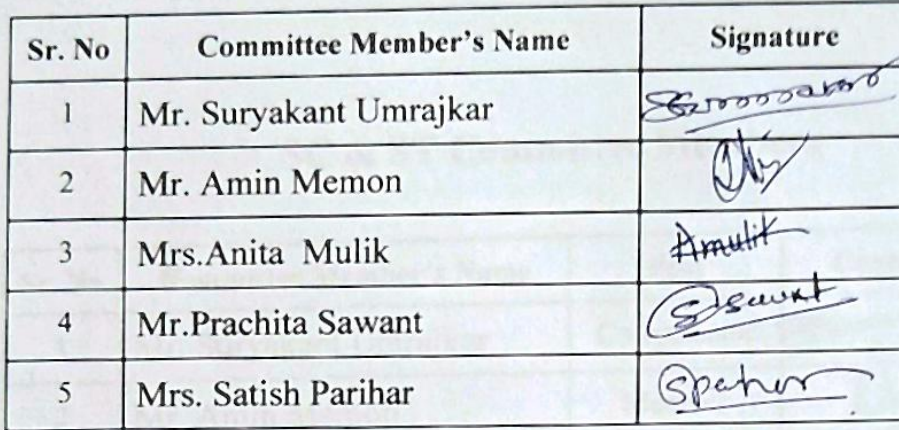 Sr. No Committee Member's Name Signature
1 Mr. Suryakant Umrajkar
2 Mr. Amin Memon
3 Mrs.Anita Mulik Amulik
4 Mr.Prachita Sawant Sawant
5 Mrs. Satish Parihar